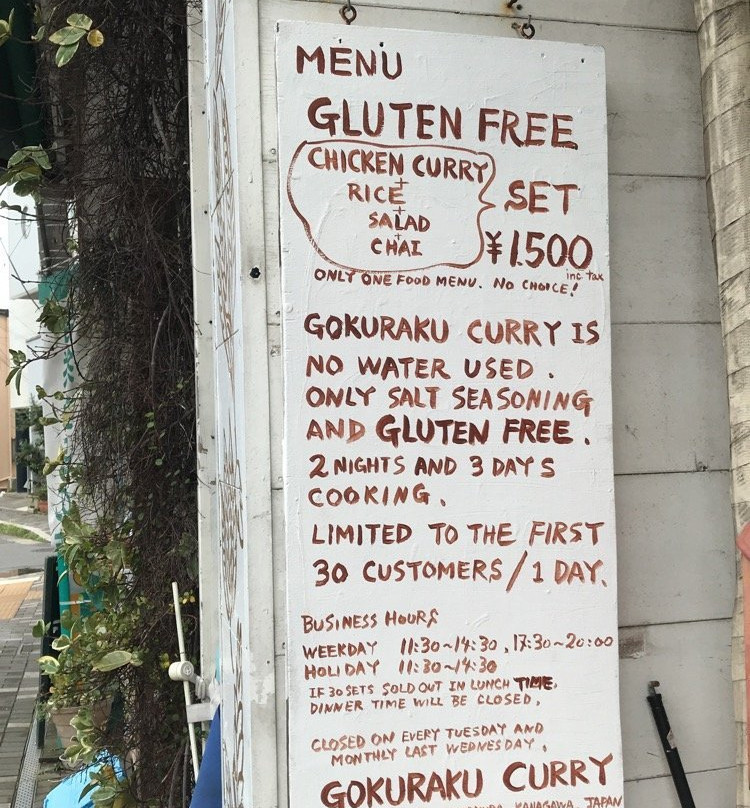 MENU
GLUTEN FREE
CHICKEN CURRY
+
RICE
+
SALAD
+
CHAI
SET
¥1.500
inc. tax
ONLY ONE FOOD MENU. NO CHOICE!
GOKURAKU CURRY IS
NO WATER USED.
ONLY SALT SEASONING
AND GLUTEN FREE.
2 NIGHTS AND 3 DAYS
COOKING.
LIMITED TO THE FIRST
30 CUSTOMERS/1 DAY.
BUSINESS HOURS
WEEKDAY 11:30~14:30, 17:30~20:00
HOLIDAY 11:30~14:30
IF 30 SETS SOLD OUT IN LUNCH TIME.
DINNER TIME WILL BE CLOSED.
CLOSED ON EVERY TUESDAY AND
MONTHLY LAST WEDNESDAY.
GOKURAKU CURRY
KANAGAWA, JAPAN